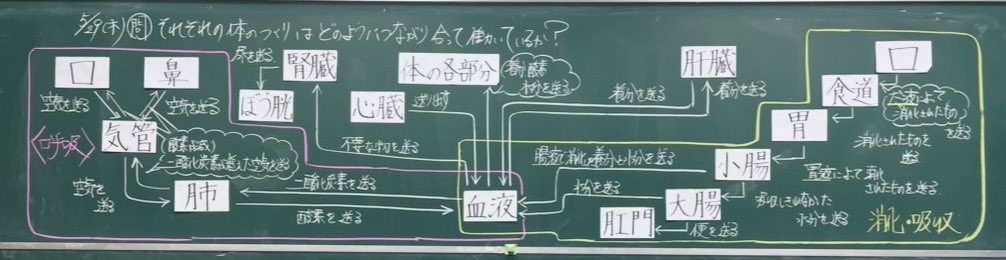 5/29(木) 問 それぞれの体のつくりはどのようにつながり合って働いているか?
口
鼻
空気を送る
空気を送る
気管
<呼吸>
酸素が減り
二酸化炭素が増えた空気を送る
空気を送る
肺
二酸化炭素を送る
酸素を送る
尿を送る
腎臓
ぼう胱
不要な物を送る
心臓
送り出す
体の各部分
養分 酸素
水分を送る
血液
肝臓
養分を送る
養分を送る
口
食道
だ液によって
消化されたもの
を送る
胃
消化されたものを
送る
小腸
胃液によって消化
されたものを送る
腸液で消化 養分と水分を送る
水分を送る
大腸
吸収しきれなかった
水分を送る
肛門
便を送る
消化・吸収